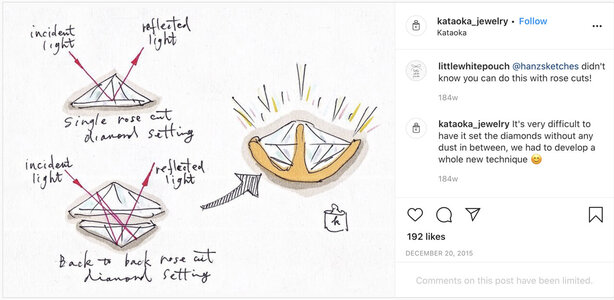 incident
light
reflected
light
Single rose cut
diamond setting
incident
light
reflected
light
Back to back rose cut
diamond setting
k
kataoka_jewelry • Follow
Kataoka
littlewhitepouch @hanzsketches didn't
know you can do this with rose cuts!
184w
kataoka_jewelry It's very difficult to
have it set the diamonds without any
dust in between, we had to develop a
whole new technique 😊
184w
192 likes
DECEMBER 20, 2015
Comments on this post have been limited.